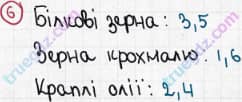 6 Білкові зерна: 3,5
Зерна крохмалю: 1,6
Краплі олії: 2,4